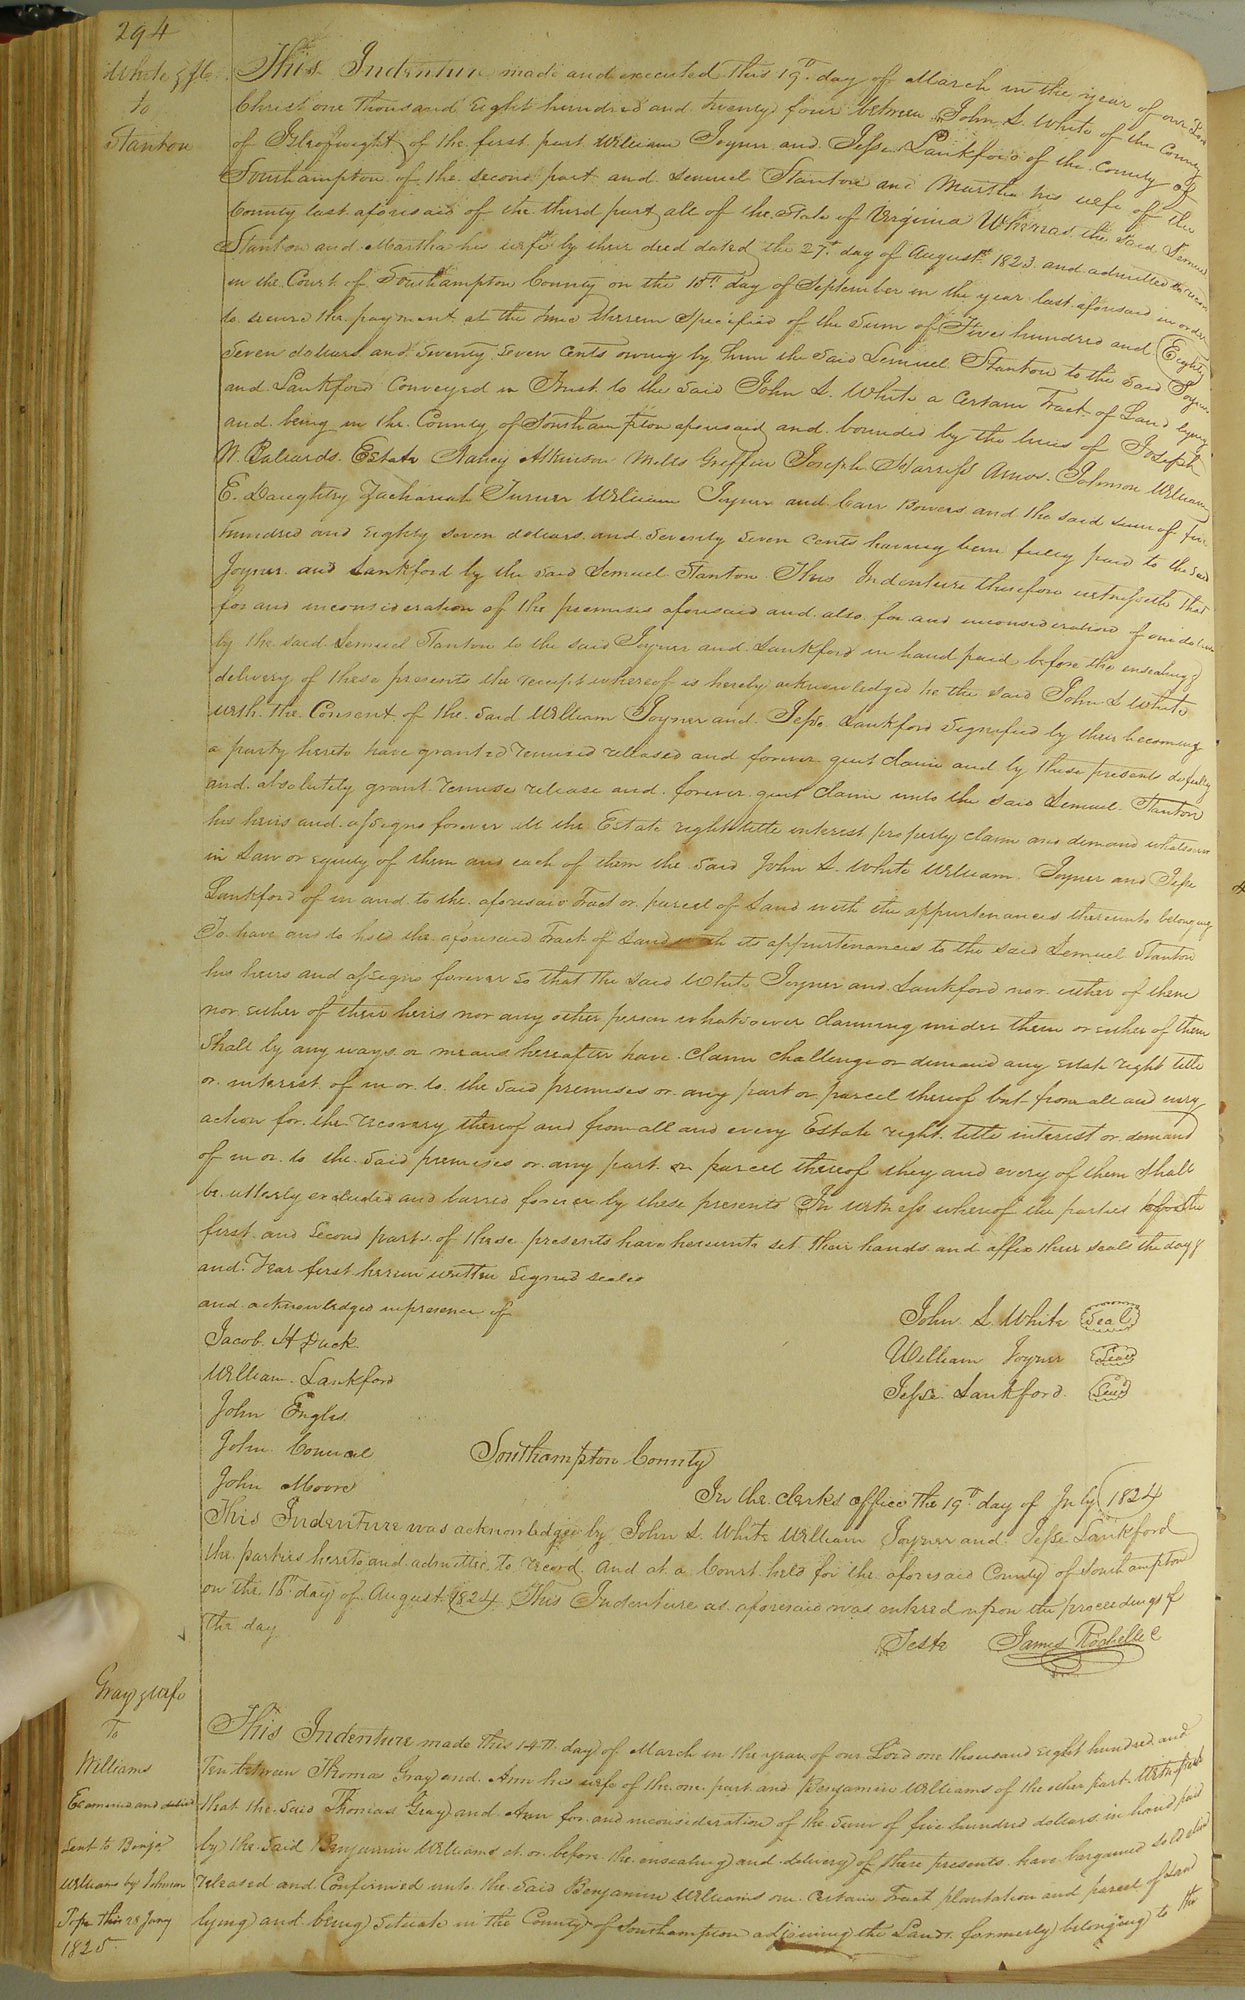 294
White &c
to
Stanton
This Indenture made and executed this 19th day of March in the year of our Lord
Christ one thousand Eight hundred and twenty four between John S. White of the County
of Isle of wight of the first part William Joyner and Jesse Lankford of the County of
Southampton of the second part and Lemuel Stanton and Martha his wife of the
County last aforesaid of the third part all of the State of Virginia Whereas the said Lemuel
Stanton and Martha his wife by their deed dated the 27th day of August 1823 and admitted to record
in the Court of Southampton County on the 15th day of September in the year last aforesaid in order
to secure the payment at the time therein Specified of the Sum of Five hundred and Eighty
Seven dollars and Seventy Seven Cents owing by him the said Lemuel Stanton to the said Joyner
and Lankford Conveyed in Trust to the said John S. White a Certain Tract of Land lying
and being in the County of Southampton aforesaid and bounded by the lines of Joseph
W. Ballards Estate Nancy Atkinson Mills Griffin Joseph Harriss Amos Johnson William
E. Daughtry Zachariah Turner William Joyner and Carr Bowers and the said sum of five
hundred and eighty seven dollars and Seventy Seven Cents having been fully paid to the said
Joyner and Lankford by the said Lemuel Stanton This Indenture therefore witnesseth that
for and inconsideration of the premises aforesaid and also for and inconsideration of one dollar
by the said Lemuel Stanton to the said Joyner and Lankford in hand paid before the ensealing &
delivery of these presents the receipt whereof is hereby acknowledged he the said John S White
with the Consent of the said William Joyner and Jesse Lankford Signified by their becoming
a party hereto have granted remised released and forever quit claim and by these presents do fully
and absolutely grant remise release and forever quit Claim unto the said Lemuel Stanton
his heirs and assigns forever all the Estate right title interest property claim and demand whatsoever
in Law or equity of them and each of them the said John S. White William Joyner and Jesse
Lankford of in and to the aforesaid Tract or parcel of Land with the appurtenances thereunto belonging
To have and to hold the aforesaid Tract of Land with its appurtenances to the said Lemuel Stanton
his heirs and assigns forever so that the said White Joyner and Lankford nor either of them
nor either of their heirs nor any other person whatsoever claiming under them or either of them
Shall by any ways or means hereafter have Claim challenge or demand any estate right title
or interest of in or to the said premises or any part or parcel thereof but from all and every
action for the recovery thereof and from all and every Estate right title interest or demand
of in or to the said premises or any part or parcel thereof they and every of them Shall
be utterly excluded and barred forever by these presents In witness whereof the parties of the
first and Second parts of these presents have hereunto set their hands and affix their seals the day &
and Year first herein written Signed sealed
and acknowledged in presence of
Jacob H Duck
William Lankford
John Engles
John Council
John Moore
John S. White Seal
William Joyner Seal
Jesse Lankford Seal
Southampton County
In the clerks office the 19th day of July 1824
This Indenture was acknowledged by John S. White William Joyner and Jesse Lankford
the parties hereto and admitted to record And at a Court held for the aforesaid County of Southampton
on the 16th day of August 1824 This Indenture as aforesaid was entered upon the proceedings of
the day
Teste James Rochelle C
Gray & wife
To
Williams
Examined and
sent to Benja
Williams by Johnson
Jesse this 28 Jany
1825
This Indenture made this 14th day of March in the year of our Lord one thousand eight hundred and
Ten between Thomas Gray and Ann his wife of the one part and Benjamin Williams of the other part Witnesseth
that the said Thomas Gray and Ann for and inconsideration of the Sum of five hundred dollars in hand paid
by the said Benjamin Williams at or before the ensealing and delivery of these presents have bargained sold
released and Confirmed unto the said Benjamin Williams one Certain Tract plantation and parcel of Land
lying and being Situate in the County of Southampton adjoining the Lands formerly belonging to the